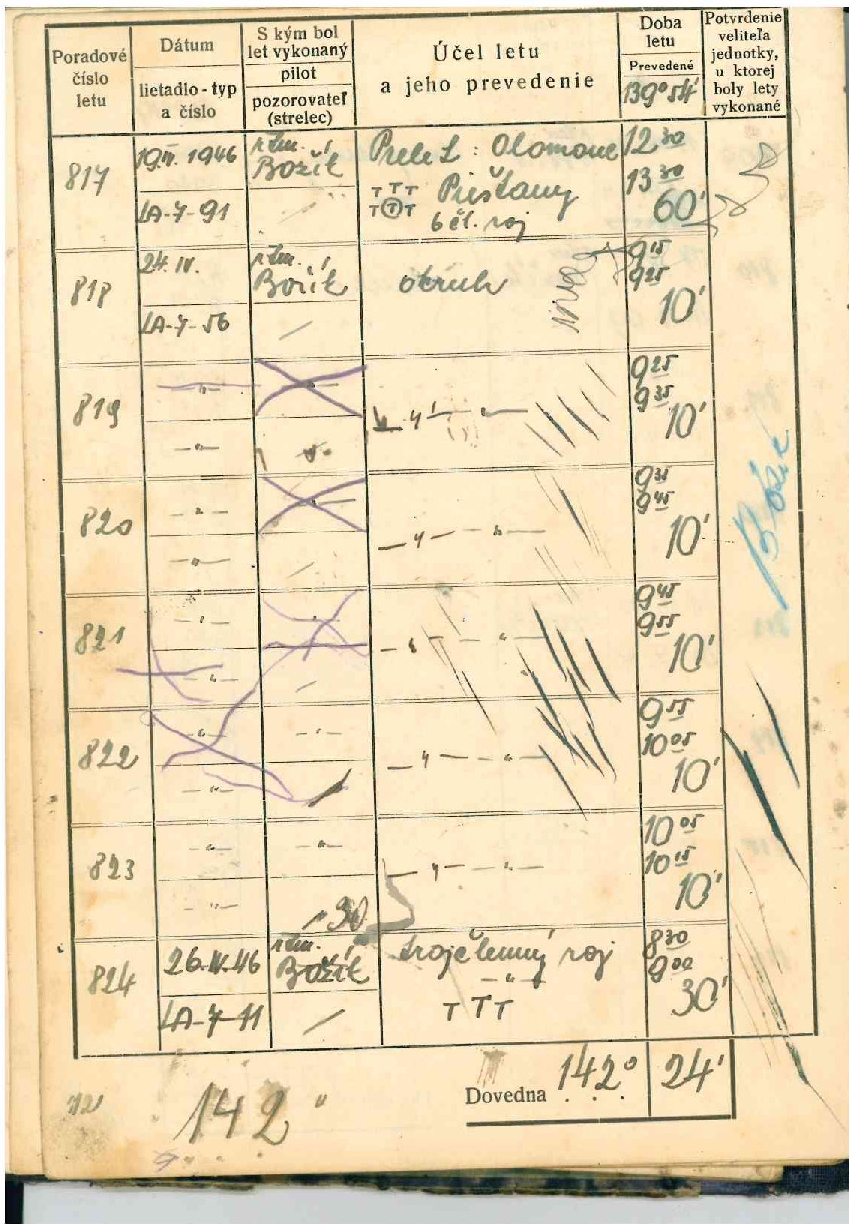 Poradové číslo letu
Dátum
lietadlo - typ a číslo
S kým bol let vykonaný
pilot
pozorovateľ (strelec)
Účel letu a jeho prevedenie
Doba letu
Prevedené
139° 54'
Potvrdenie veliteľa jednotky, u ktorej boly lety vykonané
817
19.IV. 1946
rtm. Božík
Prelet : Olomouc
12 30
LA-7-91
T T T Piešťany
13 30
T T T
60'
6 čl. roj
818
24. IV.
rtm. Božík
okruh
9 15
9 25
LA-7-56
10'
819
9 25
9 35
10'
820
9 35
9 45
10'
821
9 45
9 55
10'
822
9 55
10 05
10'
823
10 05
10 15
10'
30
824
26.IV.46
rtm. Božík
trojčlenný roj
8 30
9 00
LA-7-11
T T T
30'
Dovedna 142° 24'
142